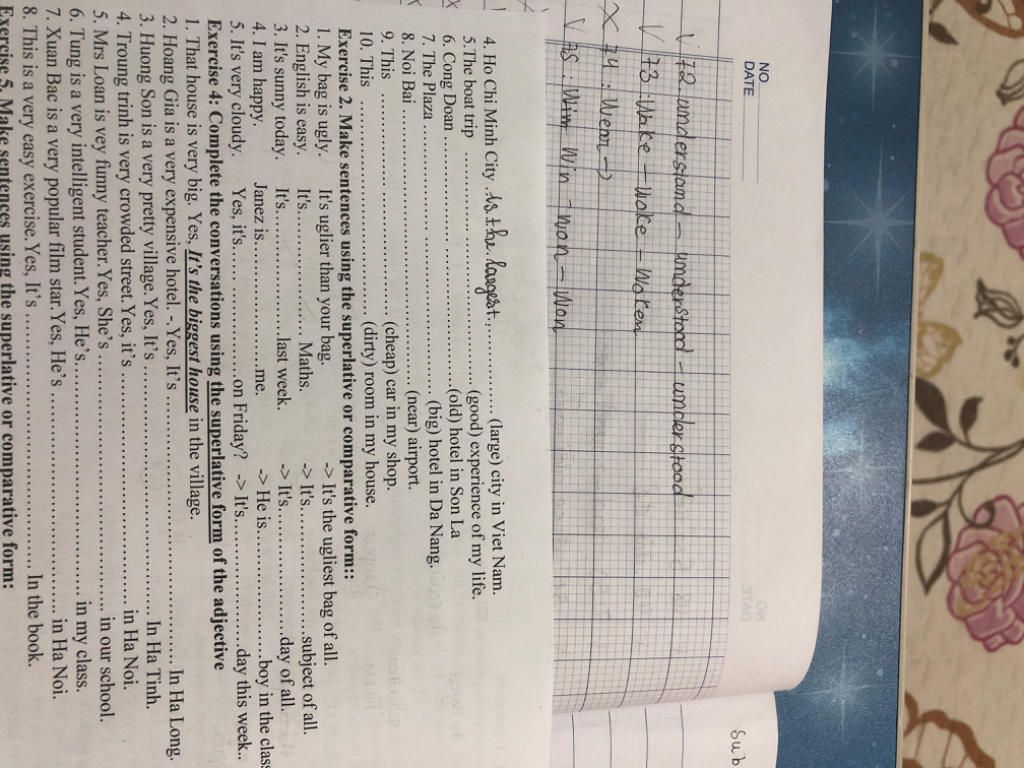 NO
DATE
V 72. understand - understood - understood
V 73: Wake - Woke - Woken
X 74: Wear →
V 75: Win Win - won - Won
Sub
4. Ho Chi Minh City .is the largest................ (large) city in Viet Nam.
5.The boat trip ................................. (good) experience of my life.
6. Cong Doan ......................................(old) hotel in Son La
7. The Plaza ....................................... (big) hotel in Da Nang.
8. Noi Bai............................................. (near) airport.
9. This .................................. (cheap) car in my shop.
10. This .................................. (dirty) room in my house.
Exercise 2. Make sentences using the superlative or comparative form::
1. My bag is ugly. It's uglier than your bag. -> It's the ugliest bag of all.
2. English is easy. It's........................ Maths. -> It's........................subject of all.
3. It's sunny today. It's........................last week. -> It's........................day of all.
4. I am happy. Janez is........................me. -> He is........................boy in the class
5. It's very cloudy. Yes, it's........................on Friday? -> It's........................day this week..
Exercise 4: Complete the conversations using the superlative form of the adjective
1. That house is very big. Yes, It's the biggest house in the village.
2. Hoang Gia is a very expensive hotel. -. Yes, It's ........................................ In Ha Long.
3. Huong Son is a very pretty village. Yes, It's ........................................ In Ha Tinh.
4. Troung trinh is very crowded street. Yes, it's ........................................ in Ha Noi.
5. Mrs Loan is vey funny teacher. Yes, She's ........................................ in our school.
6. Tung is a very intelligent student. Yes, He's........................................ in my class.
7. Xuan Bac is a very popular film star. Yes, He's ........................................ in Ha Noi.
8. This is a very easy exercise. Yes, It's ........................................ In the book.
Exercise 5. Make sentences using the superlative or comparative form: